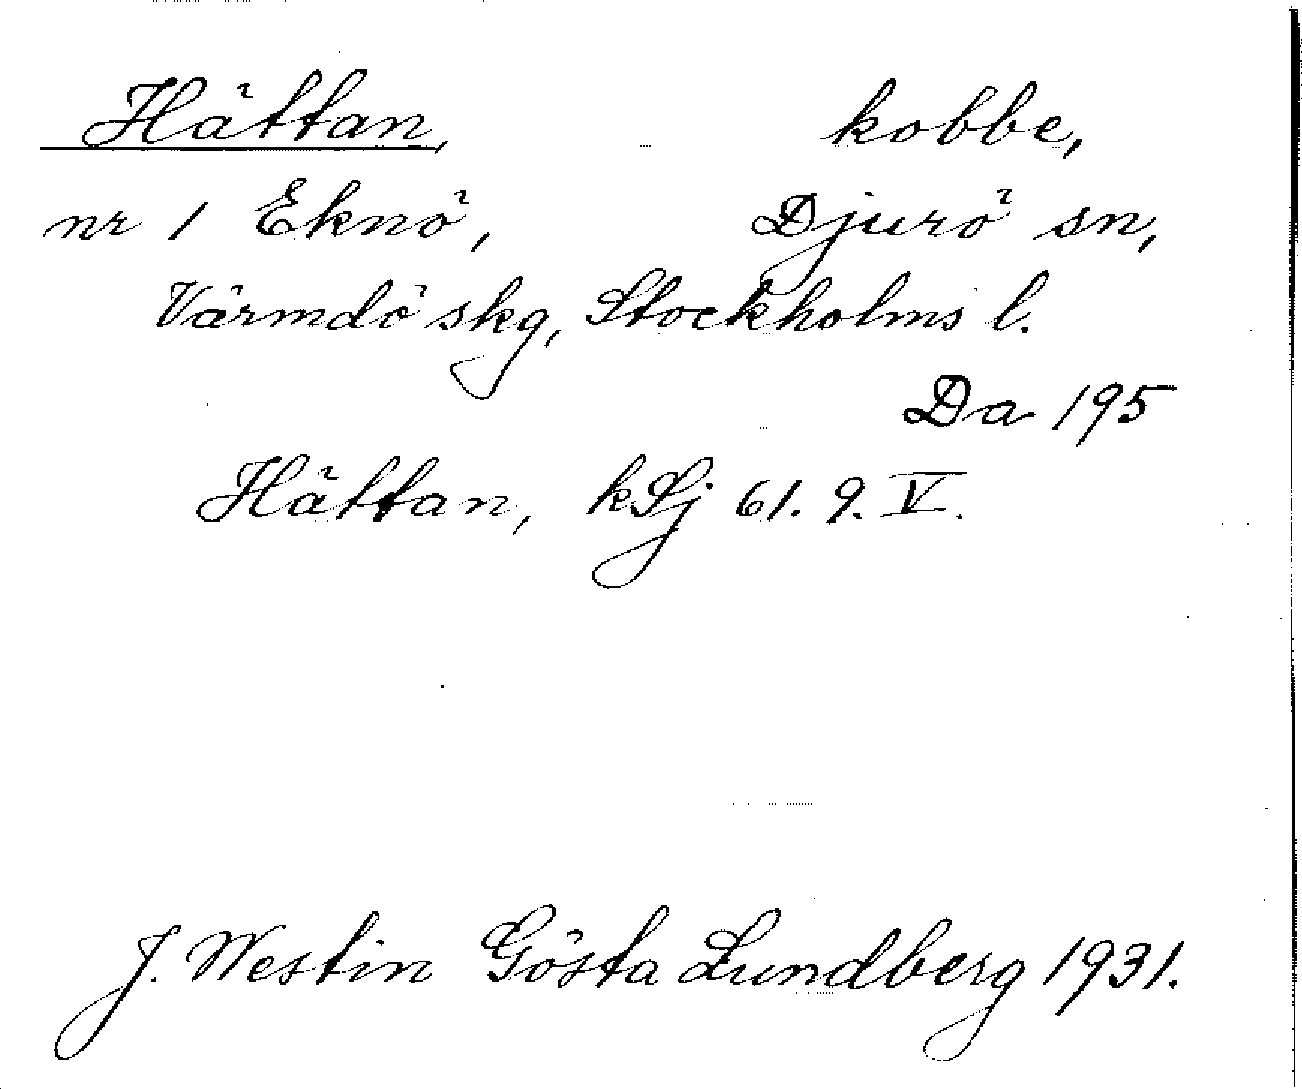 Hättan, kobbe,
nr 1 Eknö, Djurö sn,
Värmdö skg, Stockholms l.
Da 195
Hättan, kSj 61. 9. V.
J. Westin Gösta Lundberg 1931.